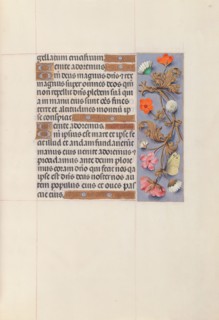 gellatum crucifixum.
Venite adoremus.
Qm deus magnus dns et rex
magnus super omnes deos qm
non repellit dns plebem suam qui
a in manu eius sunt oes fines
terre et altitudines montium ip
se conspicit
Venite adoremus.
Qm ipsius est mare et ipse fe
cit illud et aridam fundaverunt
manus eius venite adoremus et
procidamus ante deum plore
mus coram dno qui fecit nos qa
ipse est dns deus noster nos au
tem populus eius et oves pas
cue eius.